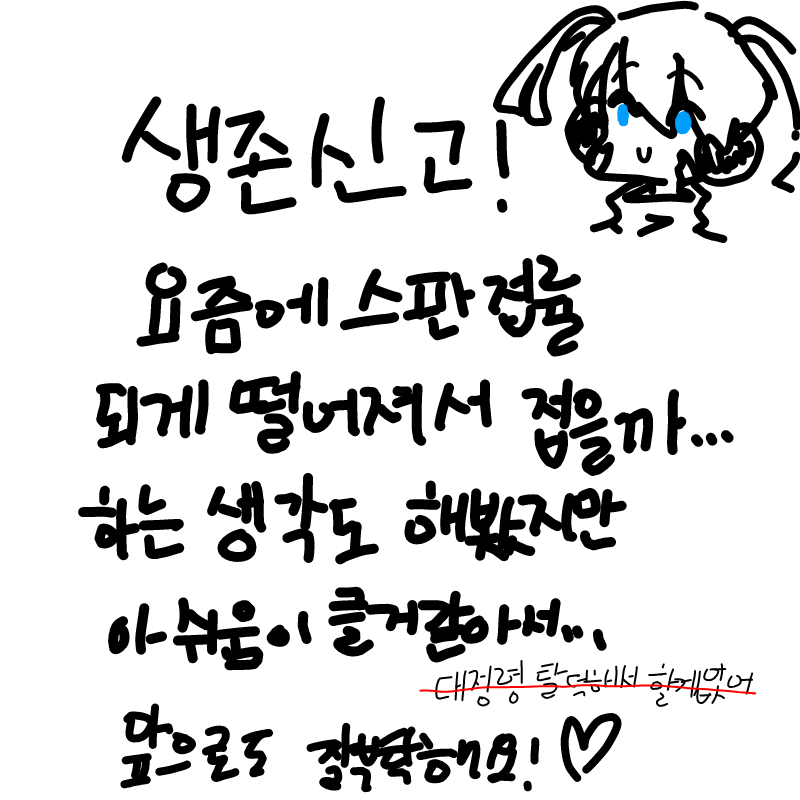 생존신고!
요즘에 스판 접률
되게 떨어져서 접을까...
하는 생각도 해봤지만
아쉬움이 클거같아서...
대정령 탈덕해서 할게없어
앞으로도 잘부탁해요!♡